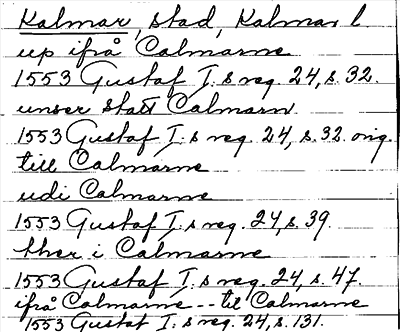 Kalmar, stad, Kalmar l
up ifrå Calmarne
1553 Gustaf I:s reg. 24, s. 32.
unser statt Calmarn
1553 Gustaf I:s reg. 24, s. 32 orig.
till Calmarne
udi Calmarne
1553 Gustaf I:s reg. 24, s. 39.
ther i Calmarne
1553 Gustaf I:s reg. 24, s. 47.
ifrå Calmarne -- til Calmarne
1553 Gustaf I:s reg. 24, s. 131.